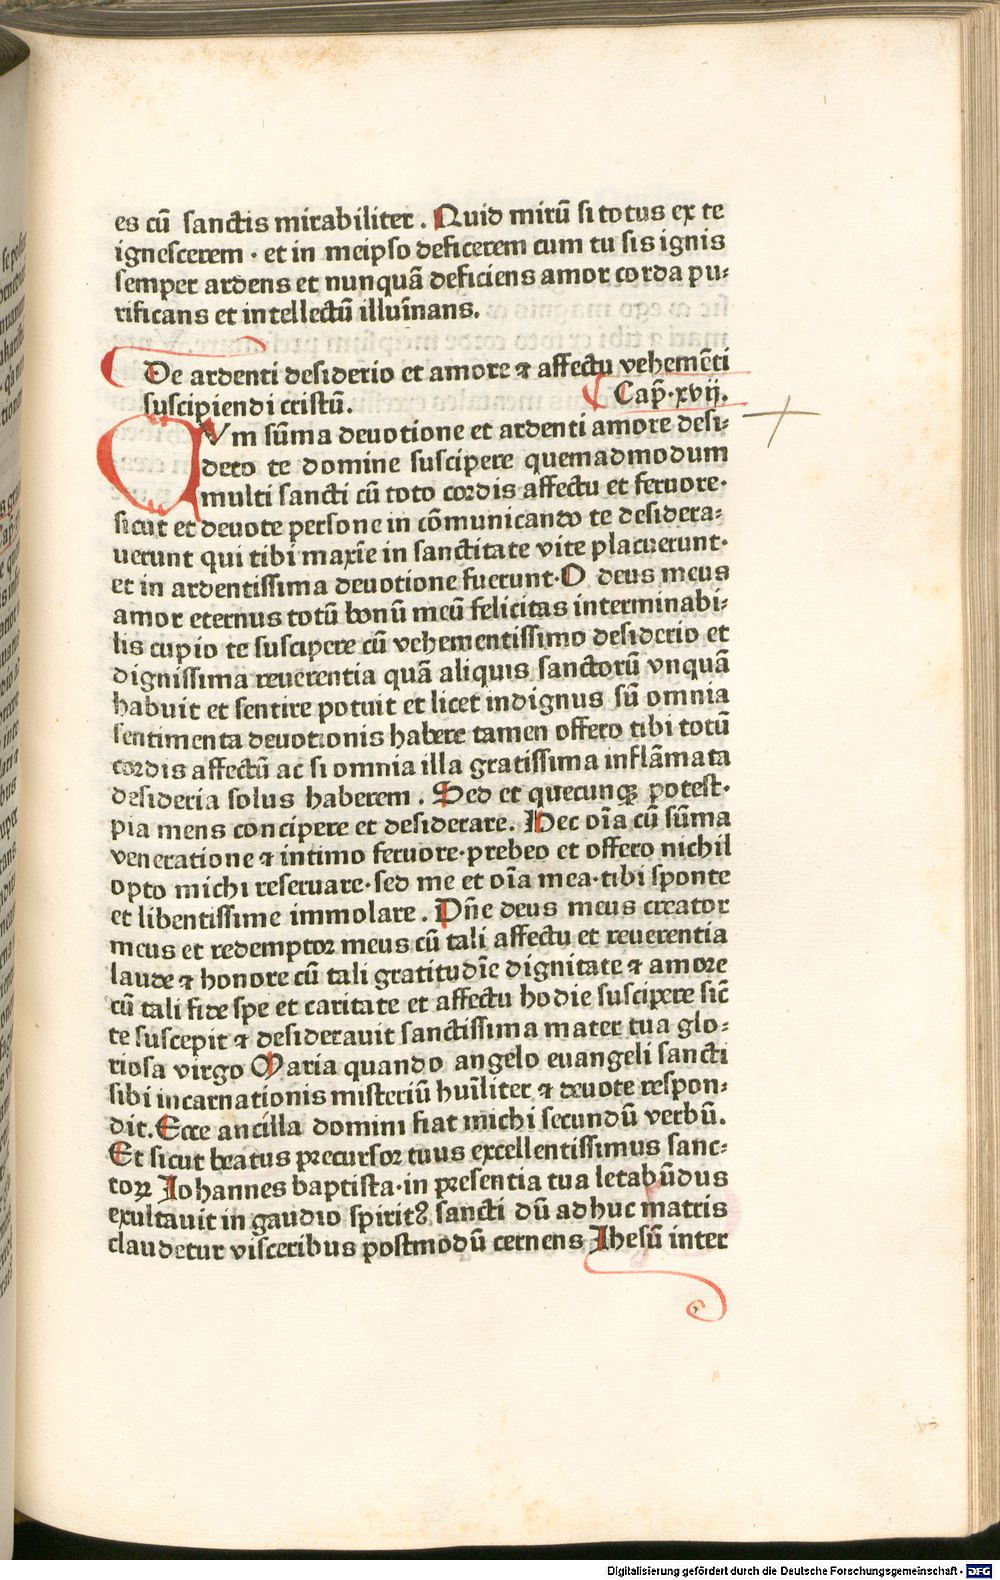 es cū sanctis mirabiliter. Quid mirū si totus ex te
ignescerem · et in meipso deficerem cum tu sis ignis
semper ardens et nunquā deficiens amor corda pu⸗
rificans et intellectū illuīnans.
De ardenti desiderio et amore ⁊ affectu vehemēti
suscipiendi cristū. Cap̄·xvij.
CVm sūma deuotione et ardenti amore desi⸗
dero te domine suscipere quemadmodum
multi sancti cū toto cordis affectu et feruore·
sicut et deuote persone in cōmunicando te desidera⸗
uerunt qui tibi maxīe in sanctitate vite placuerunt·
et in ardentissima deuotione fuerunt·O deus meus
amor eternus totū bonū meū felicitas interminabi⸗
lis cupio te suscipere cū vehementissimo desiderio et
dignissima reuerentia quā aliquis sanctorū vnquā
habuit et sentire potuit et licet indignus sū omnia
sentimenta deuotionis habere tamen offero tibi totū
cordis affectū ac si omnia illa gratissima inflāmata
desideria solus haberem. Sed et quecunqꝫ potest·
pia mens concipere et desiderare. Hec oīa cū sūma
veneratione ⁊ intimo feruore·prebeo et offero nichil
opto michi reseruare·sed me et oīa mea·tibi sponte
et libentissime immolare. Dn̄e deus meus creator
meus et redemptor meus cū tali affectu et reuerentia
laude ⁊ honore cū tali gratitudīe dignitate ⁊ amore
cū tali fide spe et caritate et affectu hodie suscipere sic̄
te suscepit ⁊ desiderauit sanctissima mater tua glo⸗
riosa virgo Maria quando angelo euangeli sancti
sibi incarnationis misteriū huīliter ⁊ deuote respon⸗
dit. Ecce ancilla domini fiat michi secundū verbū.
Et sicut beatus precursor tuus excellentissimus sanc⸗
toꝝ Iohannes baptista·in presentia tua letabūdus
exultauit in gaudio spiritꝰ sancti dū adhuc matris
claudetur visceribus postmodū cernens Ihesū inter
Digitalisierung gefördert durch die Deutsche Forschungsgemeinschaft - DFG